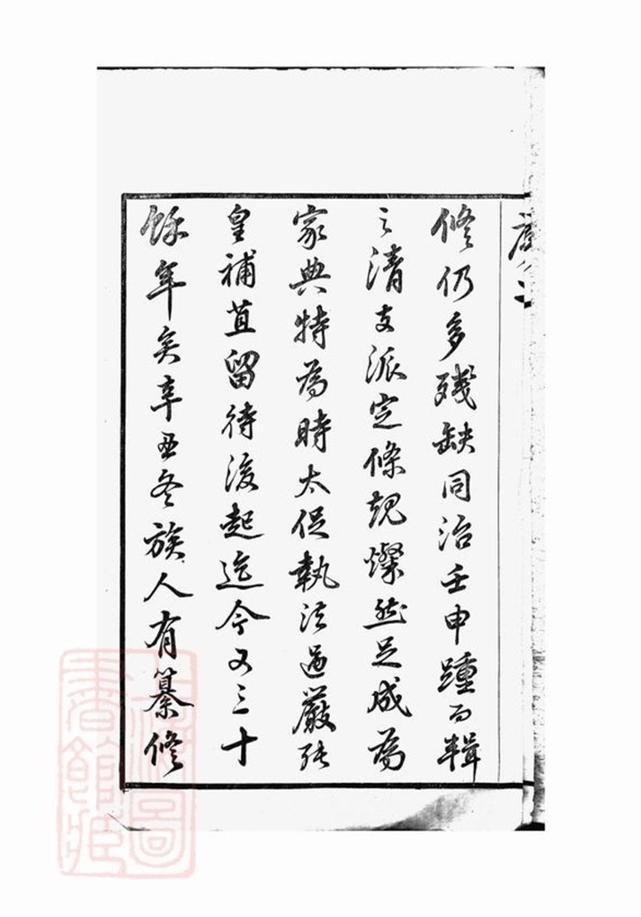 修仍多殘缺同治壬申踵而輯
之清支派定條規燦然足成為
家典特為時太促執法過嚴張
皇補苴留待後起迄今又三十
餘年矣辛丑冬族人有纂修
上海圖書館藏